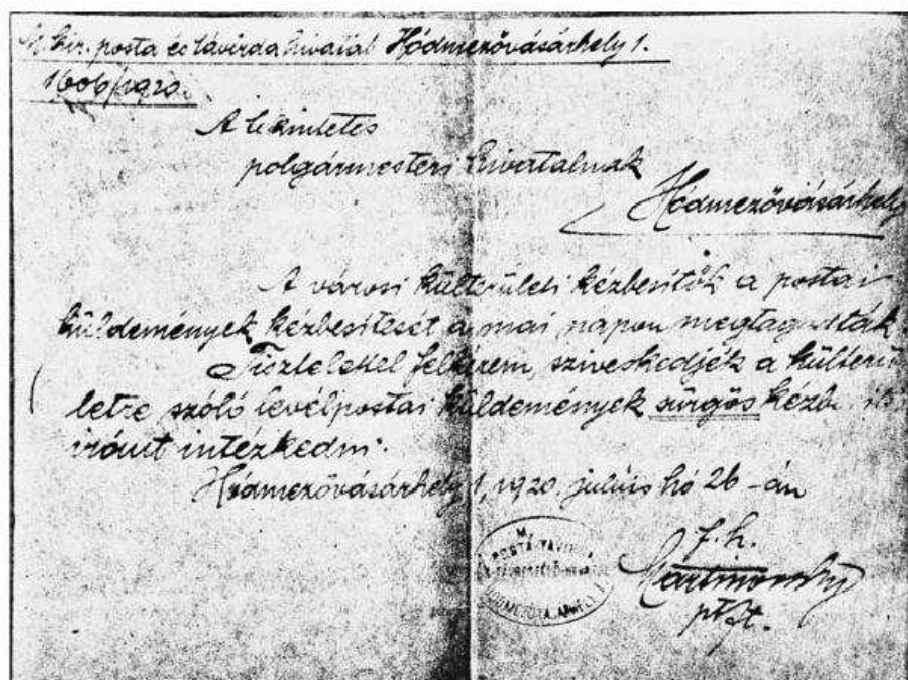 M. kir. posta és távirda hivatal Hódmezővásárhely 1.
1606/1920.
A tekintetes
polgármesteri hivatalnak
Hódmezővásárhely
A városi külterületi kézbesítők a postai
küldemények kézbesitését a mai napon megtagadták
Tisztelettel felkérem, sziveskedjék a külterü
letre szóló levélpostai küldemények sürgös kézb
iránt intézkedni.
Hódmezővásárhely 1, 1920. julius hó 26-án
f. h.
Martinovsky
M.
POSTA TÁVIRDA